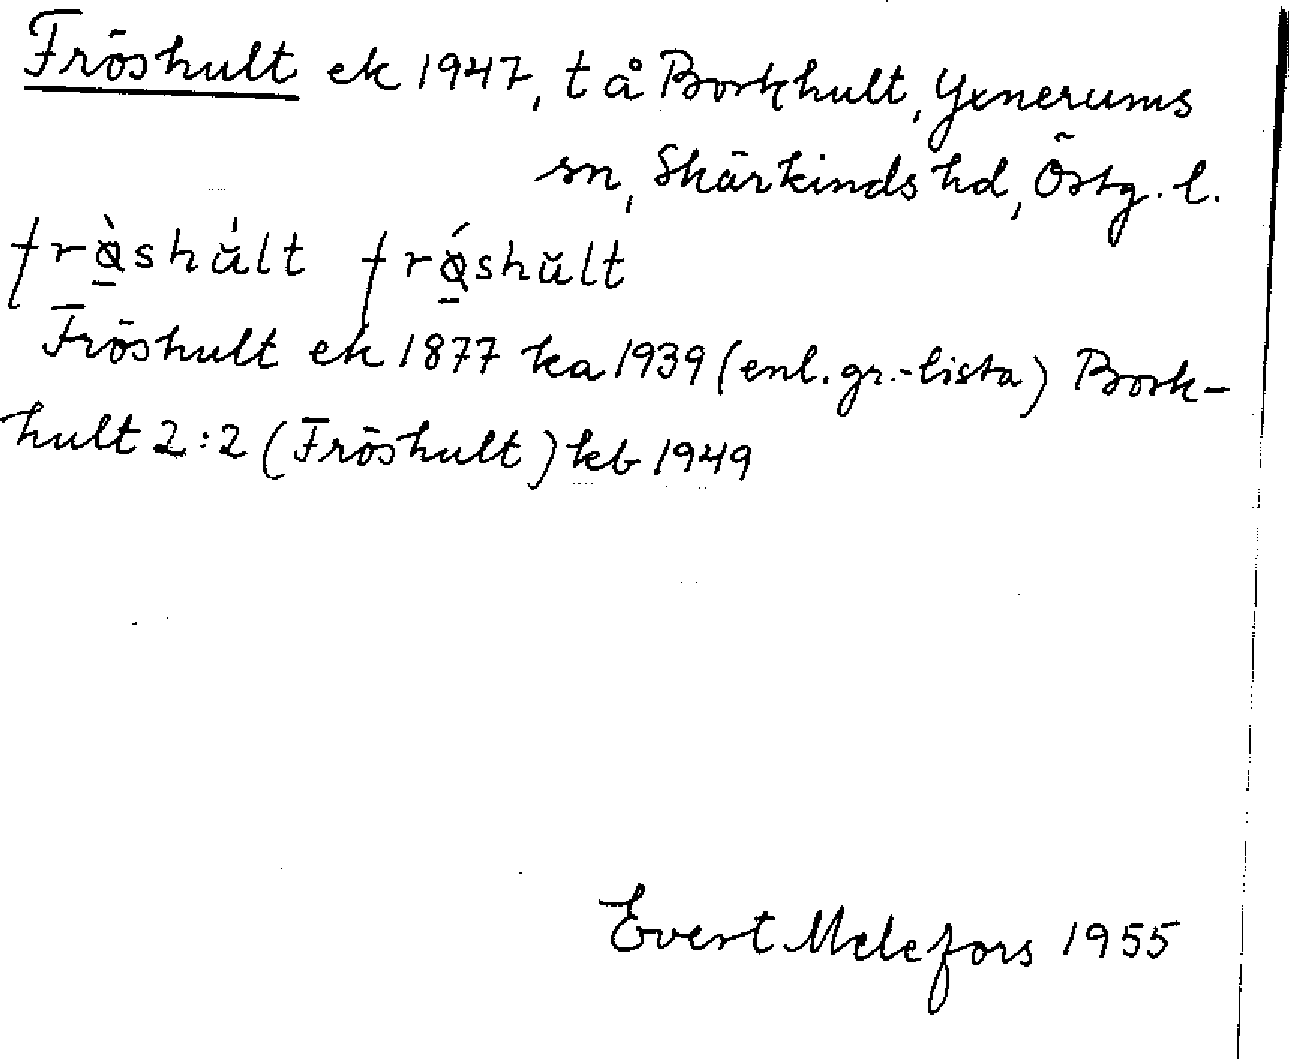 Fröshult ek 1947, t å Borkhult, Yxnerums
sn, Skärkinds hd, Östg. l.
Fröshult ek 1877 ka 1939 (enl. gr.-lista) Bork-
hult 2:2 (Fröshult) kb 1949
Evert Melefors 1955